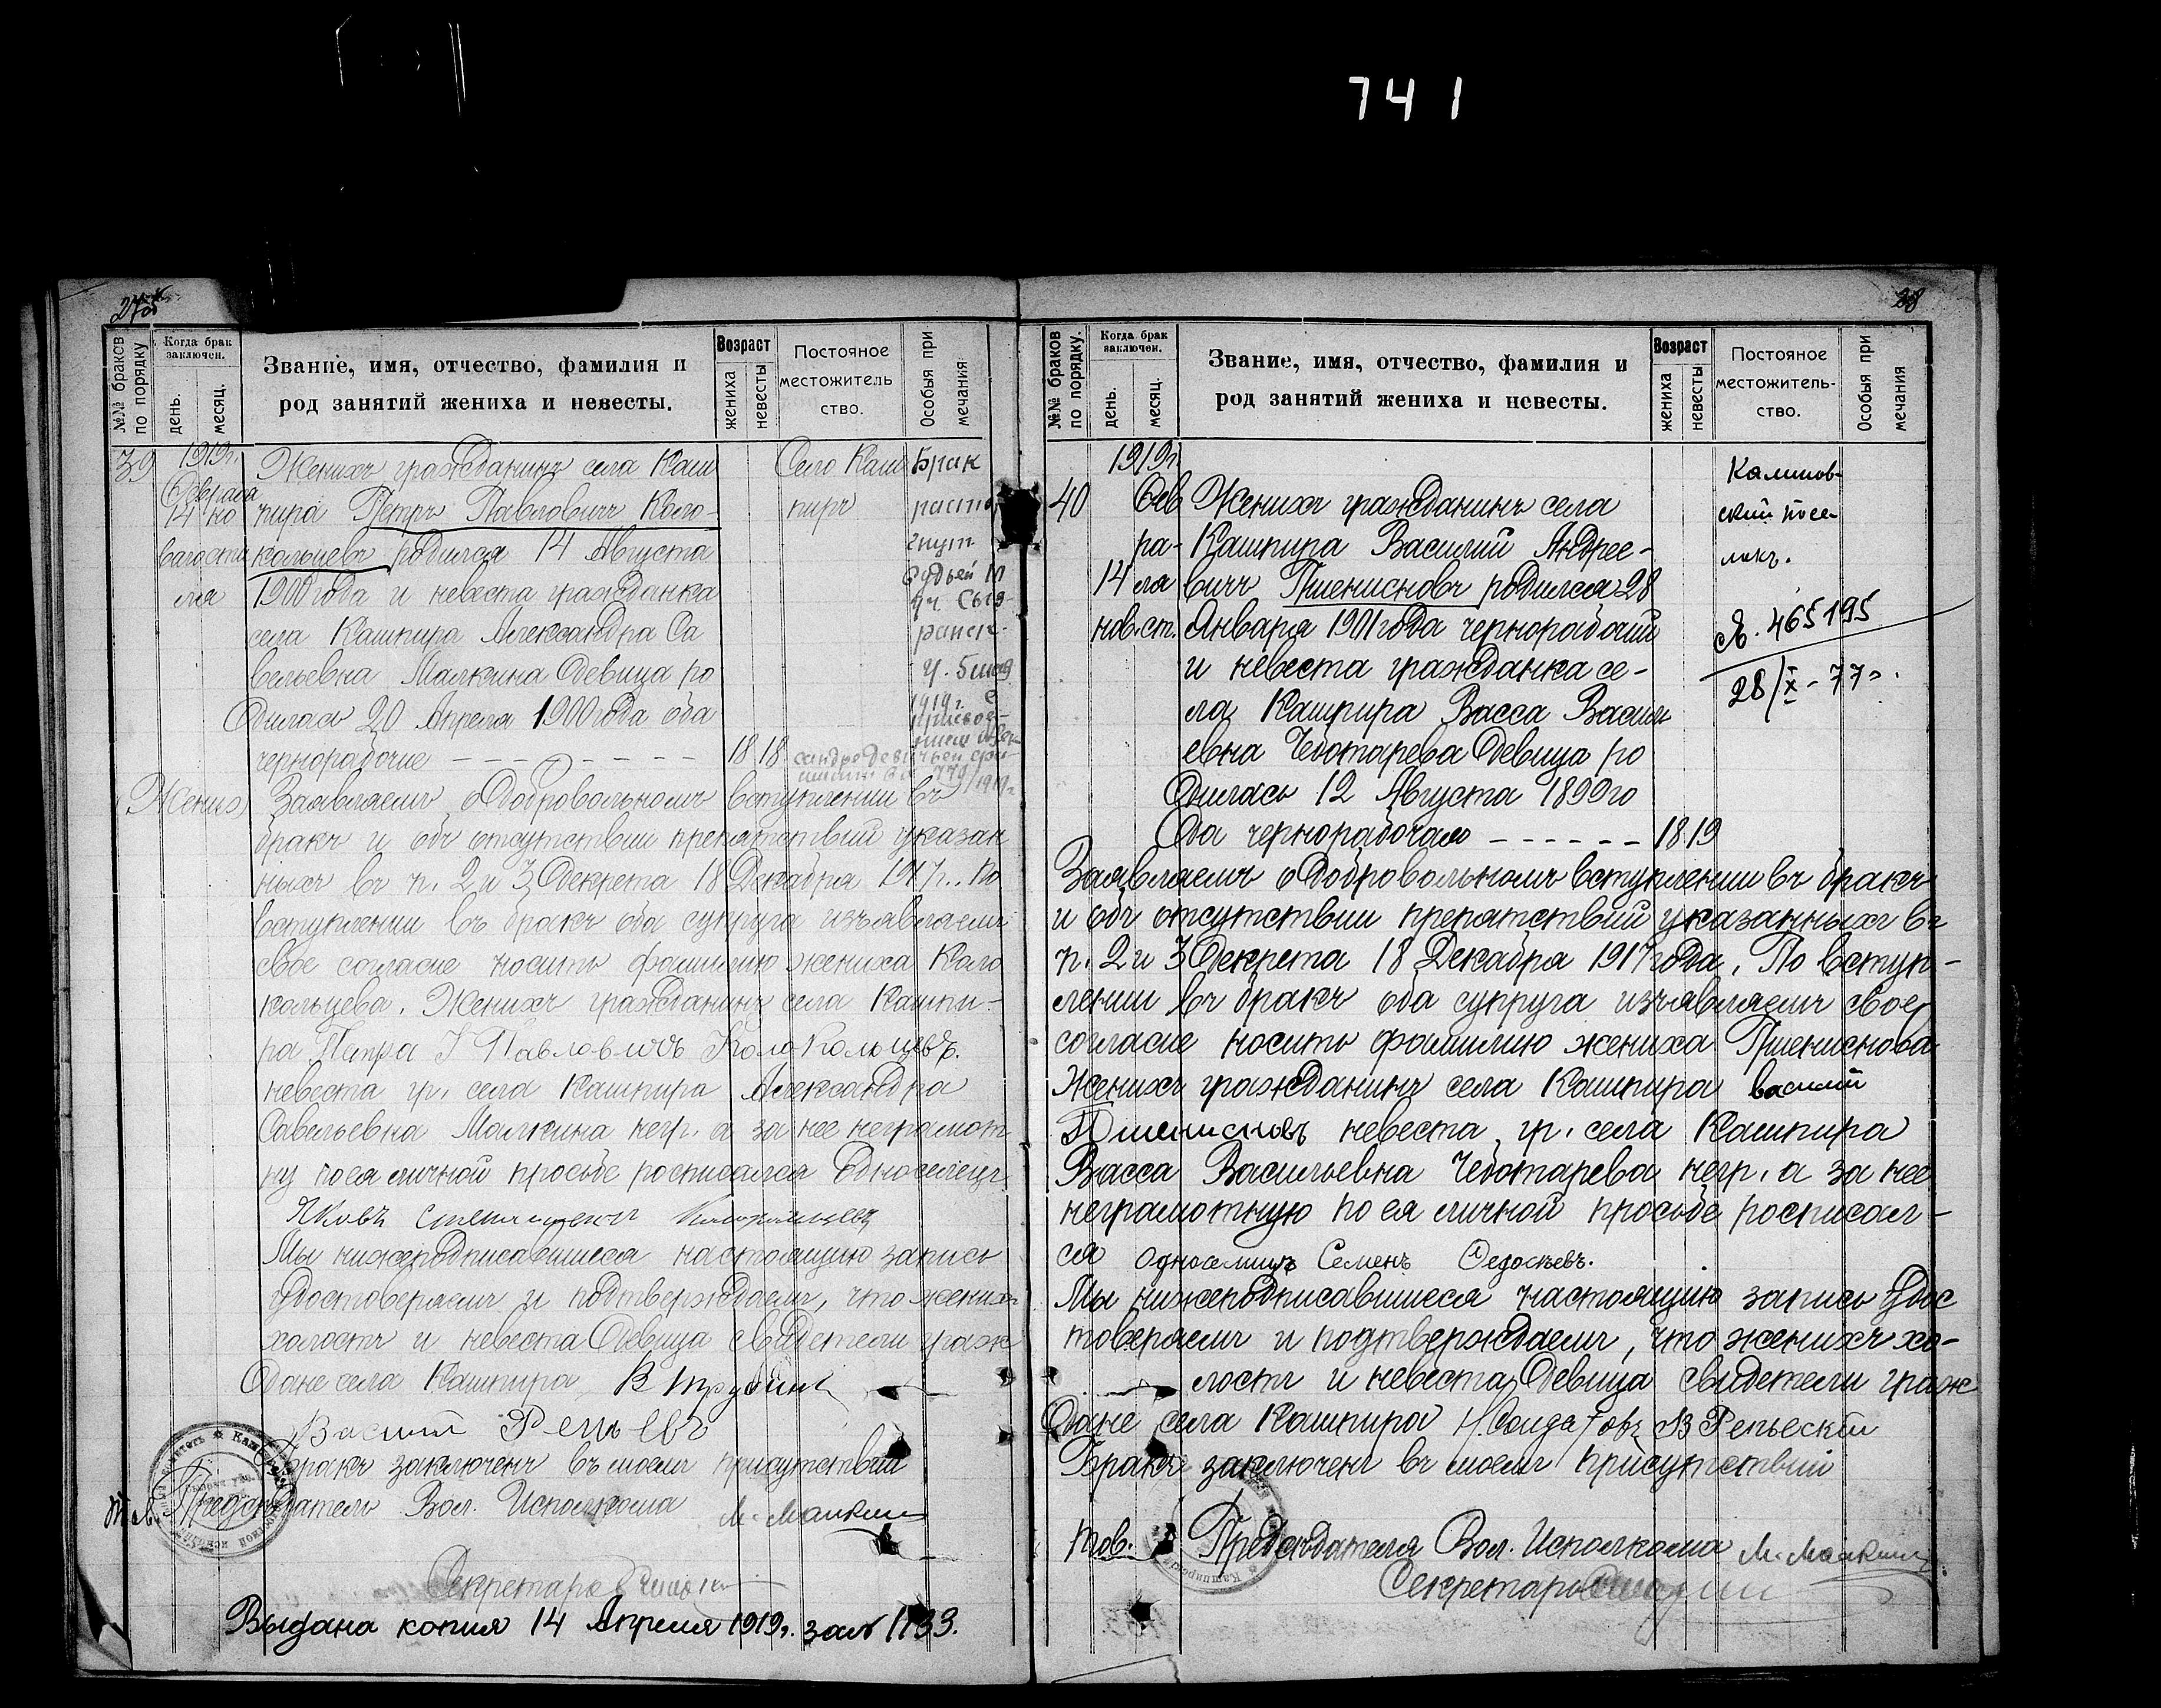 741
27об
№№ браков по порядку
Когда брак заключен.
день.
месяц.
Звание, имя, отчество, фамилия и
род занятий жениха и невесты.
Возраст
жениха
невесты
Постояное
местожитель
ство.
Особыя при
мечания
39
1919г.
Февраля
14 но
ваго сти
ля
Женихъ гражданинъ села Каш
пира Петръ Павловичъ Коло-
кольцевъ родился 14 Августа
1900 года и невеста гражданка
села Кашпира Александра Са
вельевна Малкина девица ро
дилась 20 Апреля 1900 года оба
чернорабочие - - - - - - - -
18 18
Село Каш
пиръ
Брак
растор
гнут
Судьей
уч. Сыз
ранск.
у.
1919г. с
Жених
Заявляемъ о добровольномъ вступлении въ
бракъ и объ отсутствии препятствий указан
ныхъ въ п. 2 и 3 Декрета 18 Декабря 1917г.. По
вступлении въ бракъ оба супруга изъявляемъ
свое согласие носить фамилию жениха Коло
кольцева. Женихъ гражданинъ села Кашпи-
ра Петра Павловичъ Колокольцевъ.
невеста гр. села Кашпира Александра
Савельевна Малкина негр. а за нее неграмот
ну по ея личной просьбе росписался односелецъ
Яковъ
Мы нижеподписавшиеся настоящую запись
удостоверяемъ и подтверждаемъ, что женихъ
холостъ и невеста девица свидетели граж
дане села Кашпира В Трубин
Василий Репьевъ
Бракъ заключенъ въ моемъ присутствии
Тов. Председатель Вол. Исполкома М. Малкин
Секретарь
Выдана копия 14 Апреля 1919г. за № 1133.
28
№№ браков по порядку.
Когда брак заключен.
день.
месяц.
Звание, имя, отчество, фамилия и
род занятий жениха и невесты.
Возраст
жениха
невесты
Постояное
местожитель-
ство.
Особыя при
мечания
40
1919г.
Фев
ра-
14 ля
нов. ст.
Женихъ гражданинъ села
Кашпира Василий Андрее-
вичъ Пшенисновъ родился 28
Января 1901 года чернорабочий
и невеста гражданка се-
ла Кашпира Васса Василь
евна Чеботарева девица ро
дилась 12 Августа 1899 го
да чернорабочая - - - - - -
18 19
Калинов-
ский посе-
локъ.
Я. 465195
28/IX-77г.
Заявляемъ о добровольномъ вступлении въ бракъ
и объ отсутствии препятствий указанныхъ въ
п. 2 и 3 Декрета 18 Декабря 1917 года. По вступ-
лении въ бракъ оба супруга изъявляемъ свое
согласие носить фамилию жениха Пшениснова
Женихъ гражданинъ села Кашпира василий
Пшенисновъ невеста гр. села Кашпира
Васса Васильевна Чеботарева негр. а за нее
неграмотную по ея личной просьбе росписал-
ся односелицъ Семенъ Федосѣевъ.
Мы нижеподписавшиеся настоящую запись удос
товеряемъ и подтверждаемъ, что женихъ хо-
лостъ и невеста девица свидетели граж
дане села Кашпира Н. Солдатовъ В Репьевскій
Бракъ заключенъ въ моемъ присутствии
тов. Председателя Вол. Исполкома М. Малкин
Секретарь